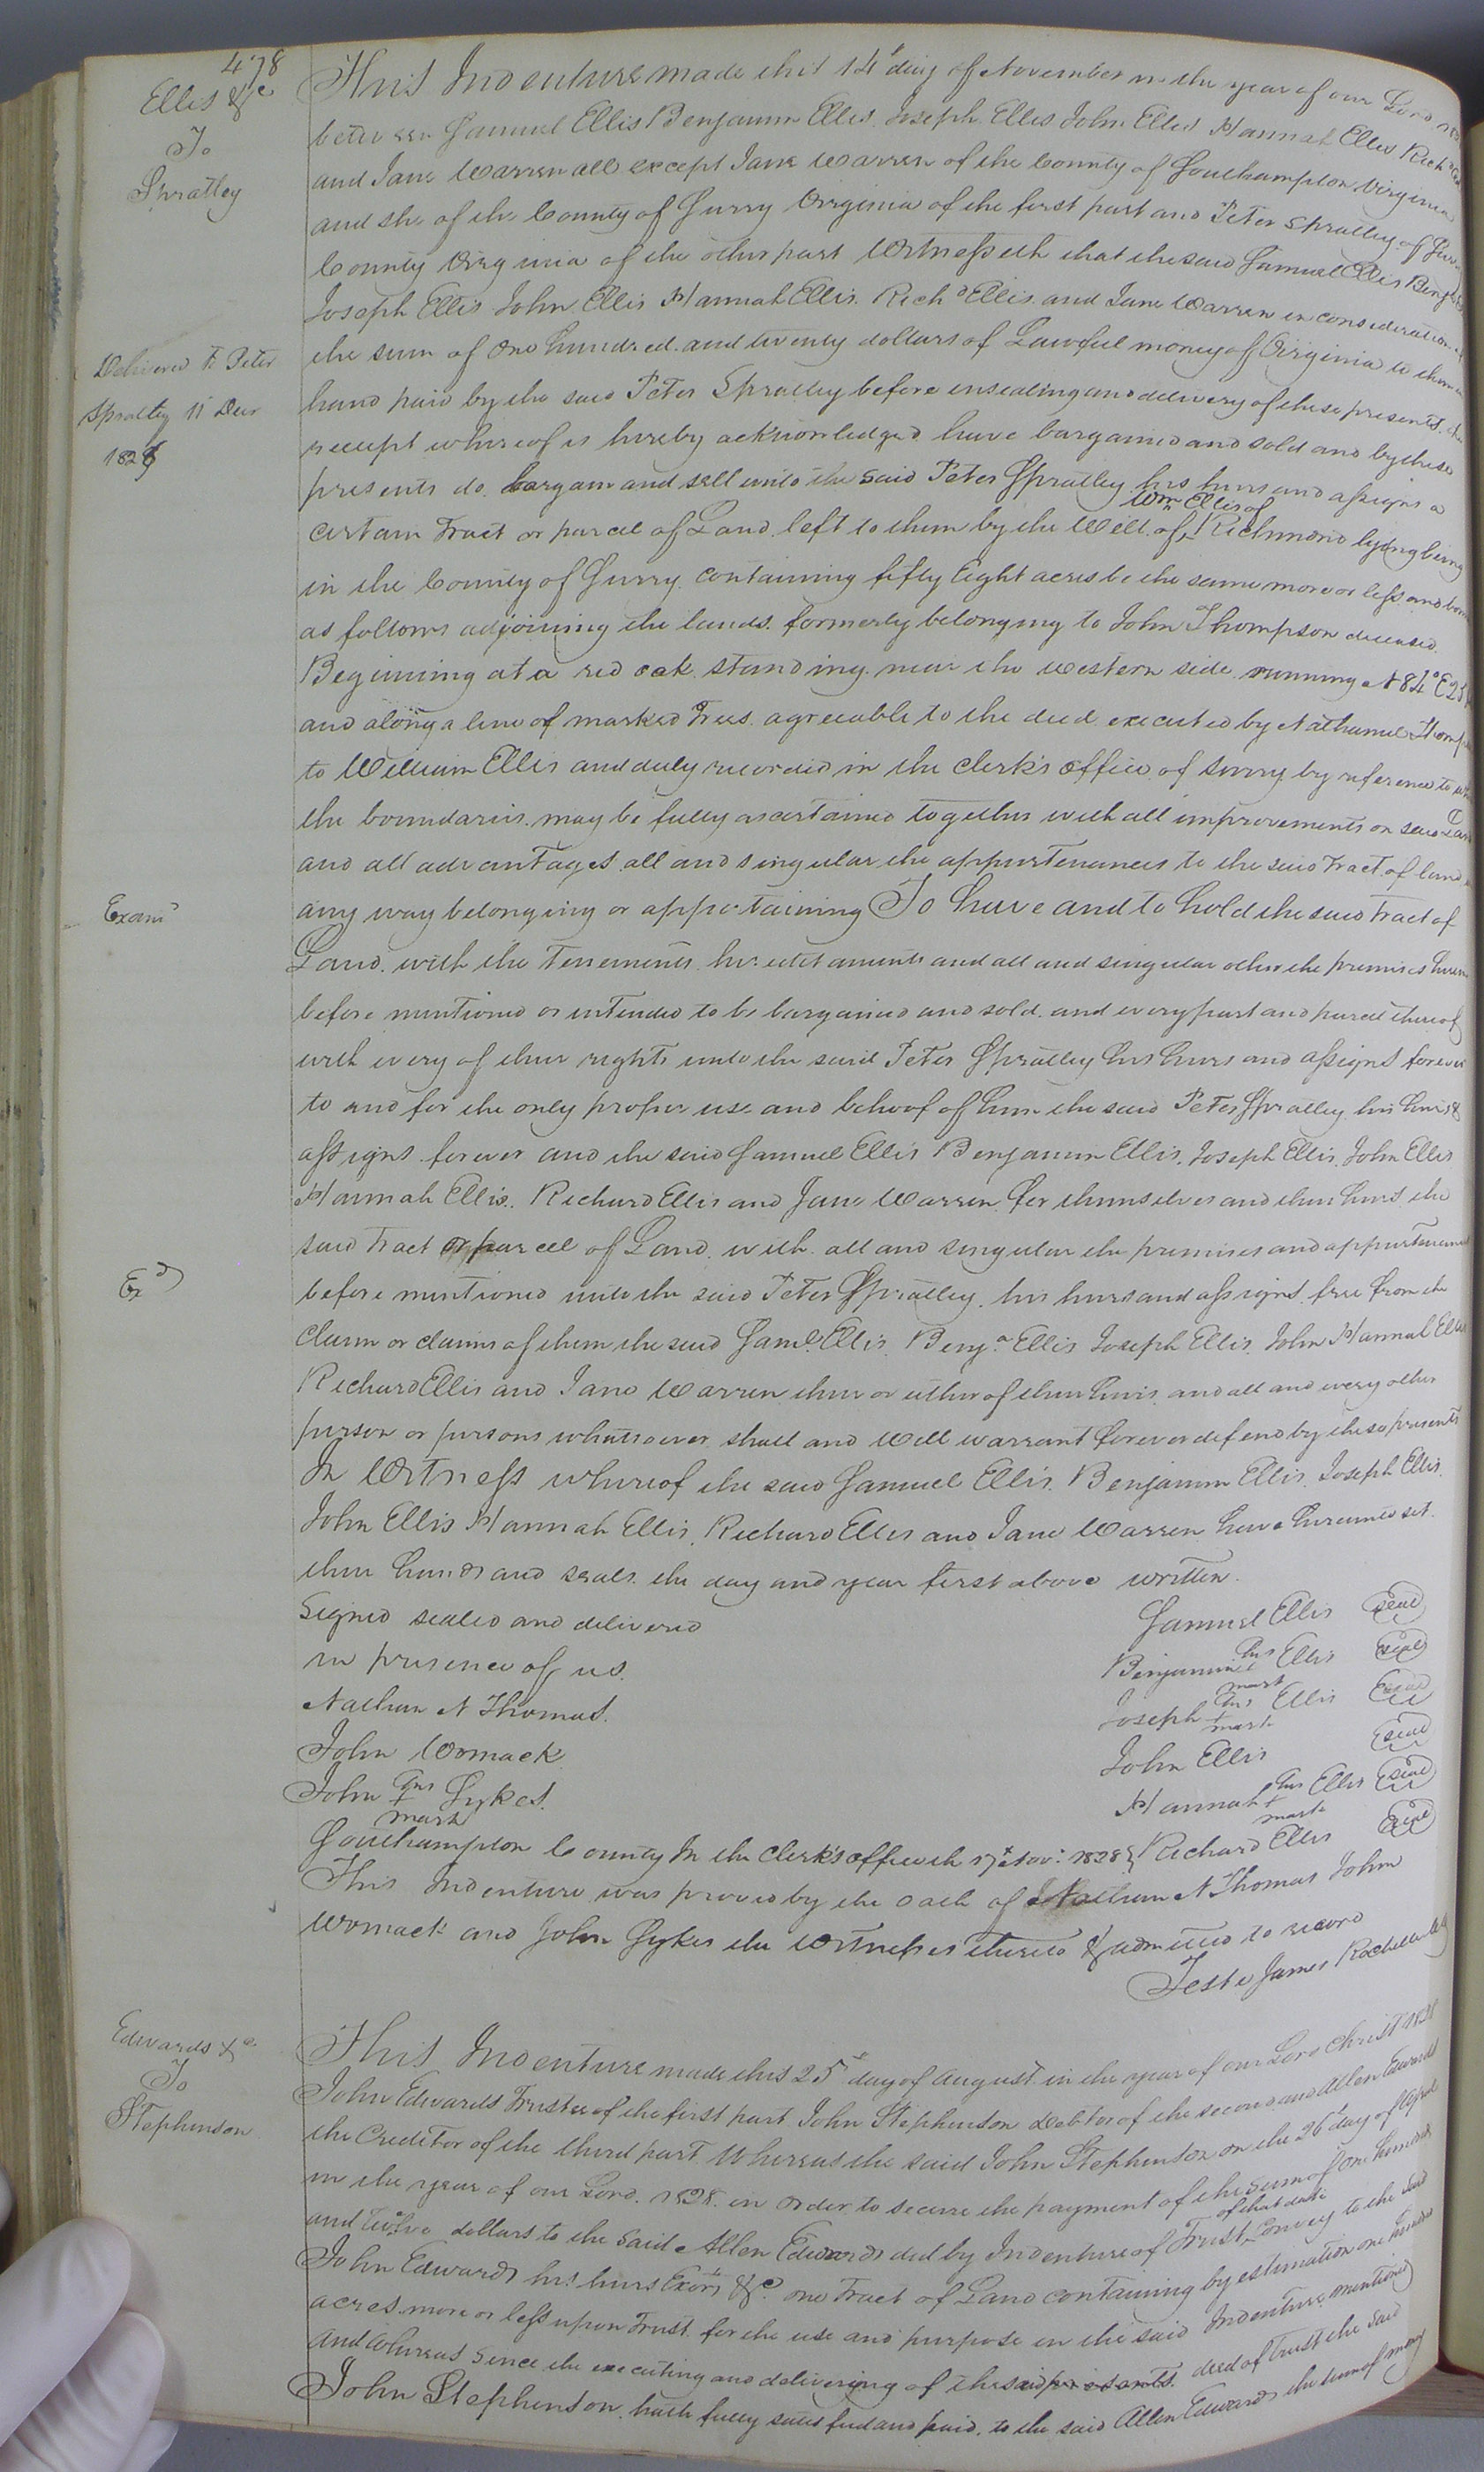 478
Ellis &c
To
Spratley
This Indenture made this 14th day of November in the year of our Lord
between Samuel Ellis Benjamin Ellis. Joseph Ellis John Ellis Hannah Ellis Richard
and Jane Warren all except Jane Warren of the County of Southampton Virginia
and she of the County of Surry Virginia of the first part and Peter Spratley of Surry
County Virginia of the other part Witnesseth that the said Samuel Ellis Benja
Joseph Ellis John Ellis Hannah Ellis. Richd Ellis and Jane Warren in consideration of
the sum of One hundred and twenty dollars of Lawful money of Virginia to them in
Delivered to Peter
Spratley 11 Decr
1828
hand paid by the said Peter Spratley before ensealing and delivery of these presents. the
receipt whereof is hereby acknowledged have bargained and sold and by these
presents do. bargain and sell unto the said Peter Spratley his heirs and assigns a
certain Tract or parcel of Land. left to them by the Will. of Wm Ellis of Richmond lying being
in the County of Surry. containing fifty Eight acres be the same more or less and
as follows adjoining the lands. formerly belonging to John Thompson deceased.
Beginning at a red oak standing. near the western side running N 84° E
and along a line of marked Trees. agreeable to the deed executed by Nathaniel
to William Ellis and duly recorded in the Clerk's Office of Surry by reference to
the boundaries. may be fully ascertained together with all improvements on said Land
and all advantages all and singular the appurtenances to the said Tract of land
Examd
any way belonging or appertaining To have and to hold the said Tract of
Land. with the Tenements. hereditaments and all and singular other the premises herein
before mentioned or intended to be bargained and sold. and every part and parcel thereof
with every of their rights unto the said Peter Spratley his heirs and assigns forever
to and for the only proper use and behoof of him the said Peter Spratley his heirs &
assigns forever and the said Samuel Ellis Benjamin Ellis. Joseph Ellis. John Ellis
Hannah Ellis. Richard Ellis and Jane Warren for themselves and their heirs the
said Tract or parcel of Land. with all and singular the premises and appurtenances
Exd
before mentioned unto the said Peter Spratley. his heirs and assigns free from the
claim or claims of them the said Saml. Ellis Benja. Ellis Joseph Ellis. John Hannah Ellis
Richard Ellis and Jane Warren their or either of their heirs and all and every other
person or persons whatsoever shall and will warrant forever defend by these presents
In Witness whereof the said Samuel Ellis. Benjamin Ellis. Joseph Ellis.
John Ellis Hannah Ellis, Richard Ellis and Jane Warren have hereunto set.
their hands and seals the day and year first above written.
Signed sealed and delivered
in presence of us.
Nathan N Thomas.
John Womack
John his + mark Sykes.
Samuel Ellis seal
Benjamin his mark Ellis seal
Joseph his + mark Ellis seal
John Ellis seal
Hannah his + mark Ellis seal
Richard Ellis seal
Southampton County In the Clerk's office the 17th Nov: 1828
This Indenture was proved by the oath of Nathan N Thomas John
Womack and John Sykes the Witnesses thereto & admitted to record
Teste James Rochelle
Edwards &c
To
Stephenson
This Indenture made this 25th day of August in the year of our Lord Christ 1828
John Edwards Trustee of the first part John Stephenson Debtor of the second and Allen Edwards
the Creditor of the third part Whereas the said John Stephenson on the 26th day of April
in the year of our Lord. 1828. in Order to secure the payment of the sum of one hundred
and Twelve dollars to the said Allen Edwards did by Indenture of Trust of that date Convey to the said
John Edwards his heirs Exors &c. one Tract of Land containing by estimation one hundred
acres more or less upon Trust for the use and purpose in the said Indenture mentioned
And Whereas since the executing and delivering of the said presents. deed of Trust the said
John Stephenson. hath fully satisfied and paid. to the said Allen Edwards the sum of money